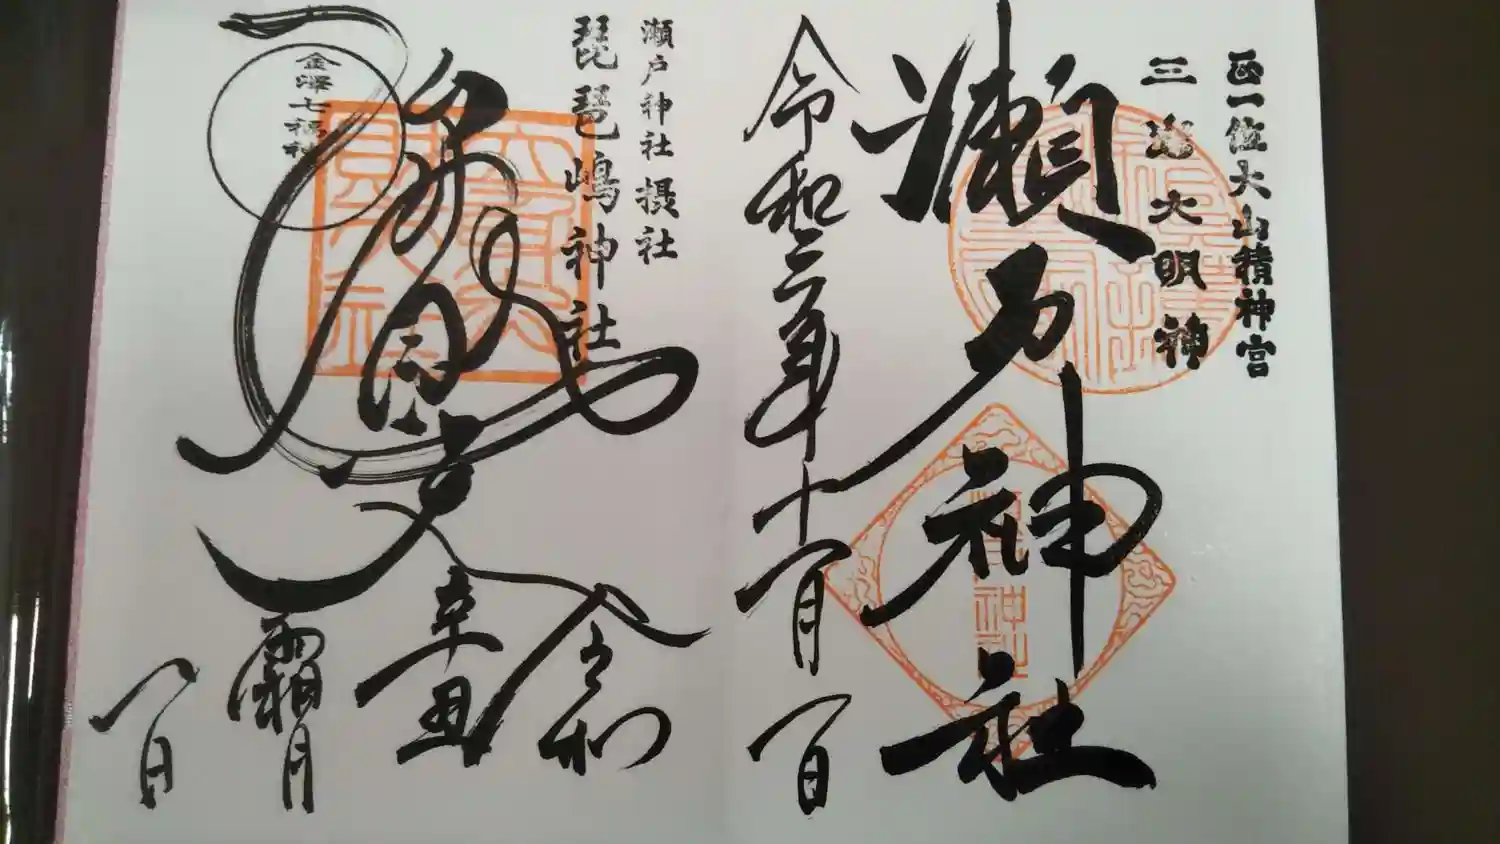 正一位大山積神宮
三嶋大明神
瀬戸神社
令和三年十一月一日
瀬戸神社摂社
琵琶嶋神社
金澤七福神
令和
辛丑
霜月
一日